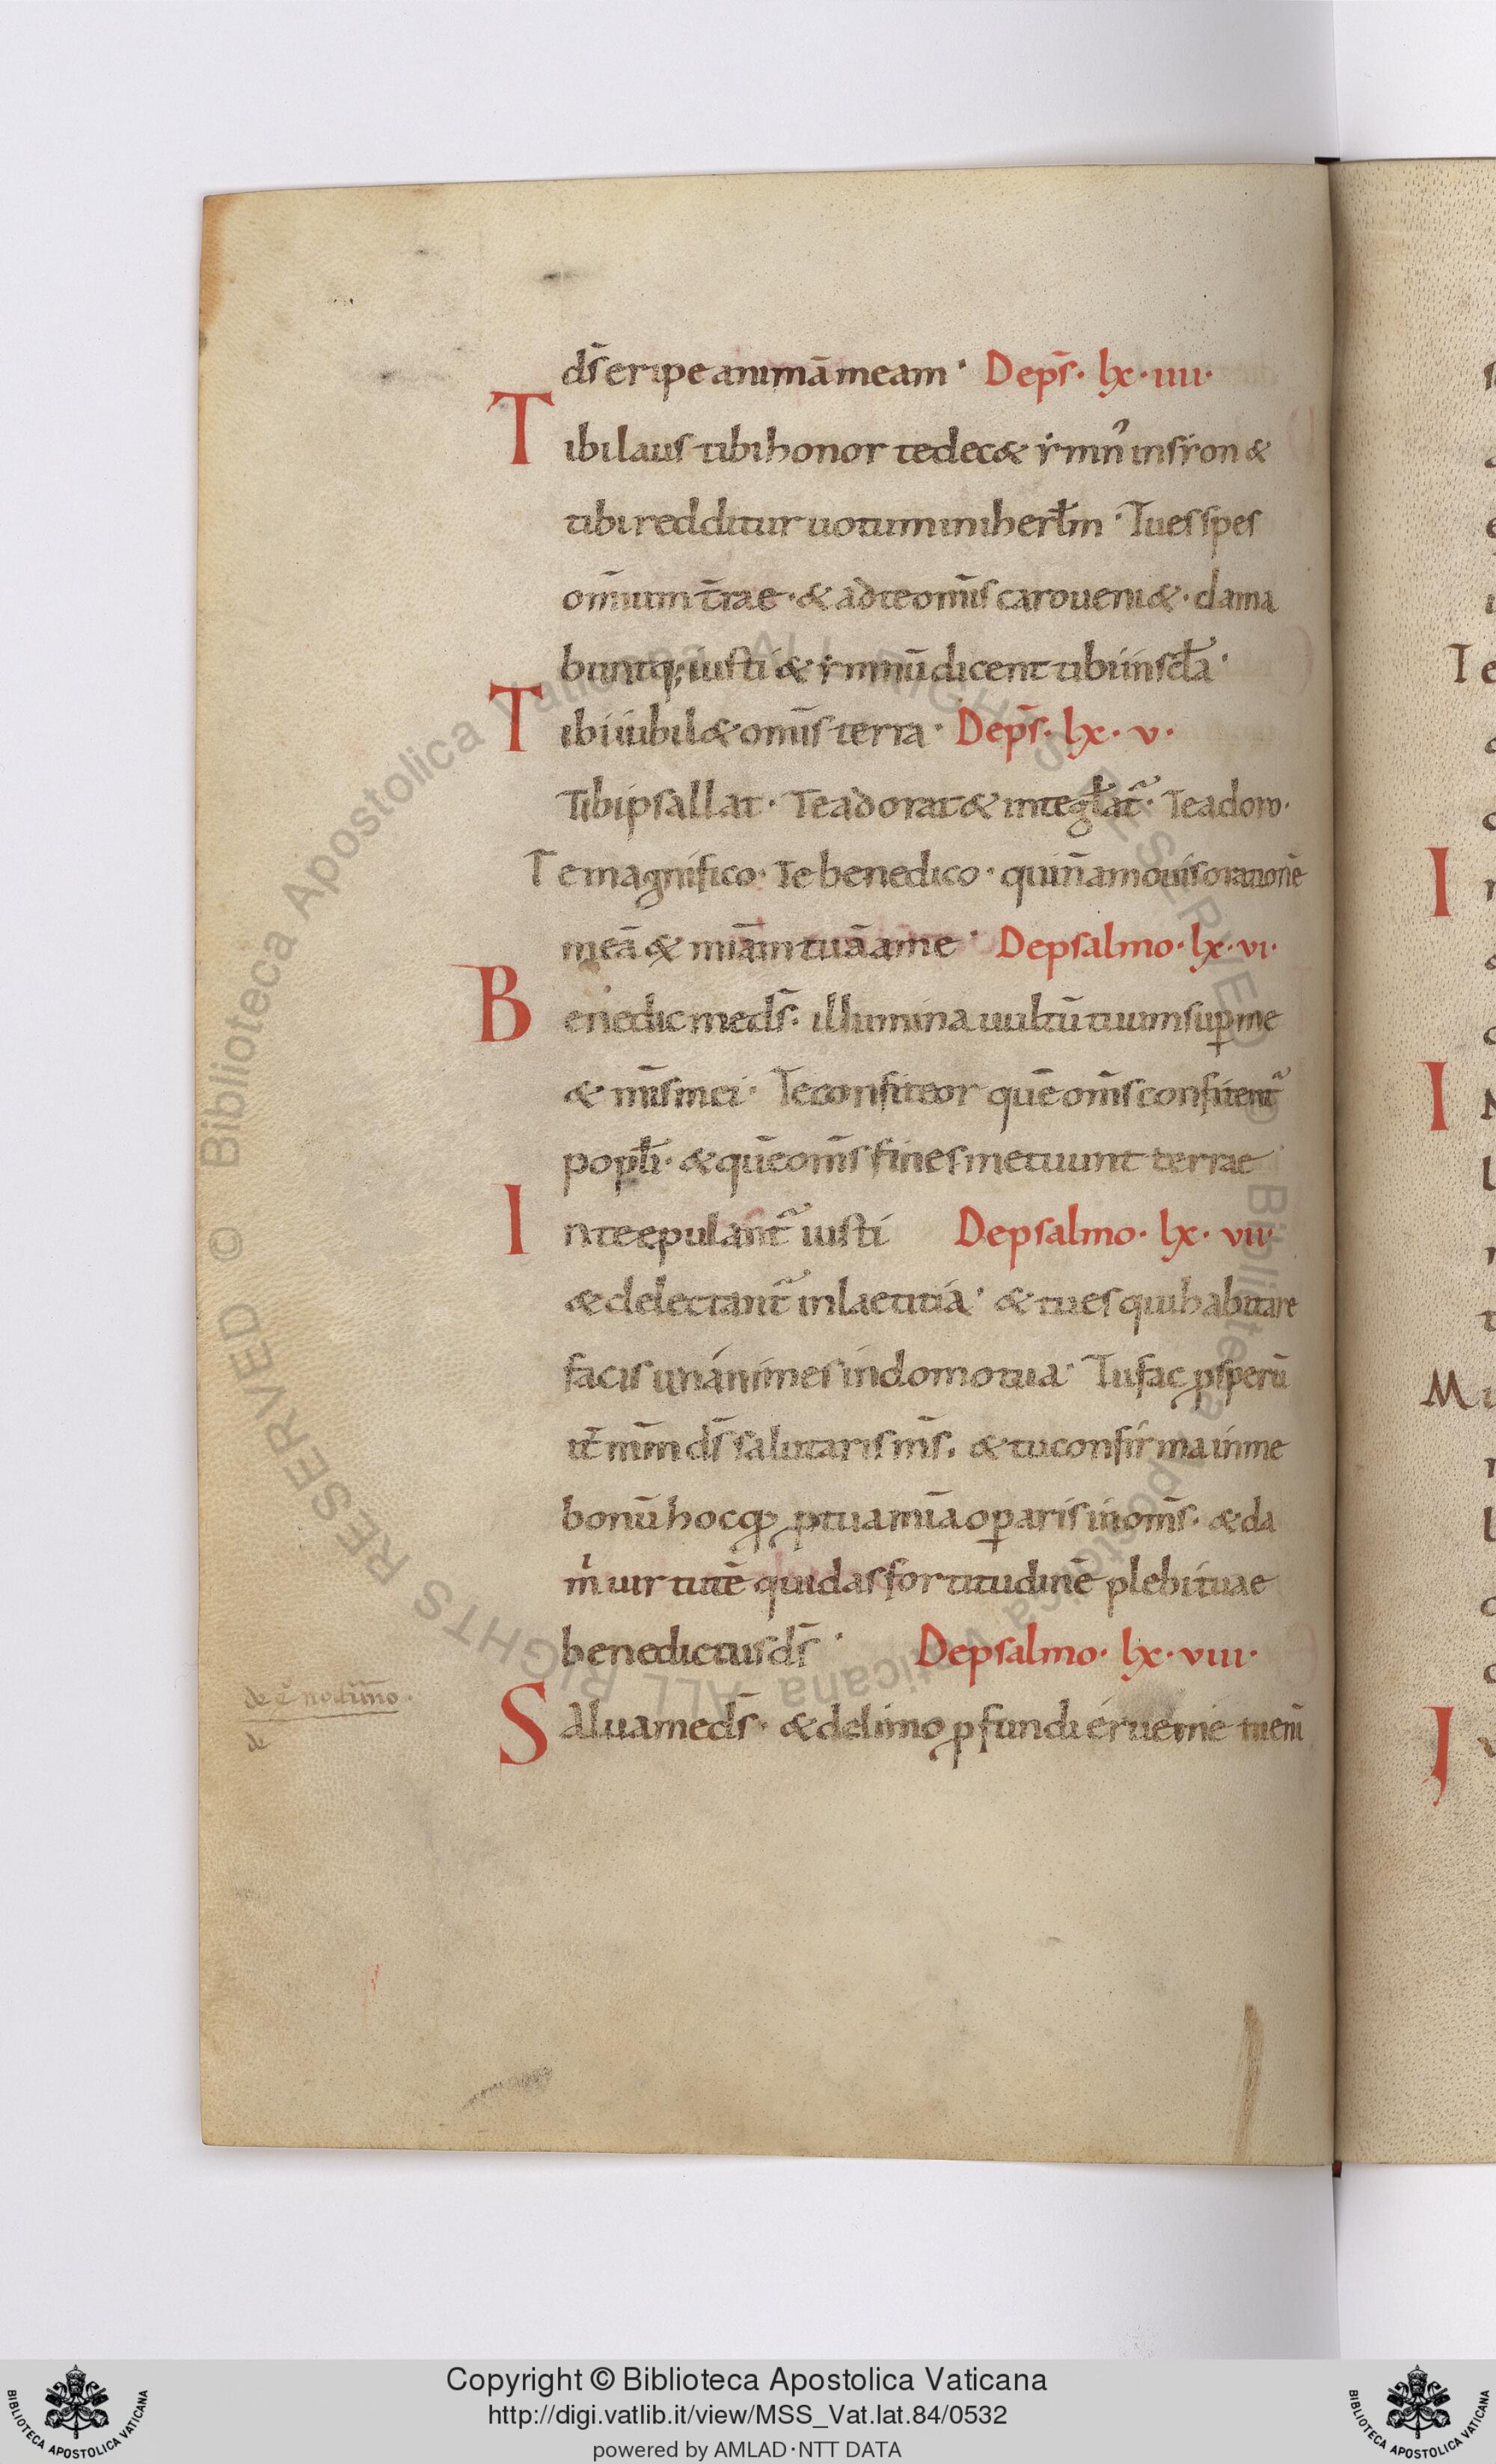 dr̄ eripe animā meam · De ps̄. lx. iiii.
Tibi laus tibi honor te dec& ẏmn̓ in sẏon &
tibi redditur uotum in iherl̄m · Tu es spes
om̄ium t̄rae · & ad te om̄is caro ueni& · clama
buntq; iusti & ẏmnū dicent tibi in sc̄la ·
Tibi iubil& omīs terra · De ps̄. lx. v.
Tibi psallat · Te adorat & in te gl̄at᷑ · Te adoro ·
Te magnifico · Te benedico · qui n̄ amouis orationē
meā & miām tuā a me · De psalmo · lx · vi ·
Benedic me ds̄ · illumina uultū tuum sup̲ me
& mīs mei · Te confiteor quē om̄s confitent᷑
popl̄i · & quē om̄s fines metuunt terrae
In te epulant᷑ iusti De psalmo · lx · vii ·
& delectant᷑ in laetitia · & tu es qui habitare
facis unanimes in domo tua · Tu fac ꝓsperū
it̄ m̄m ds̄ salutaris m̄s. & tu confirma in me
bonū hoc qđ ꝓ tua mīa oꝑaris in om̄s · & da
m̓ uirtutē qui das fortitudinē plebi tuae
benedictus ds̄ · De psalmo · lx · viii ·
Salua me ds̄ · & de limo ꝓfundi erue me
de
Copyright © Biblioteca Apostolica Vaticana
http://digi.vatlib.it/view/MSS_Vat.lat.84/0532
powered by AMLAD·NTT DATA
BIBLIOTECA APOSTOLICA VATICANA
BIBLIOTECA APOSTOLICA VATICANA
Biblioteca Apostolica Vaticana ALL RIGHTS RESERVED ©